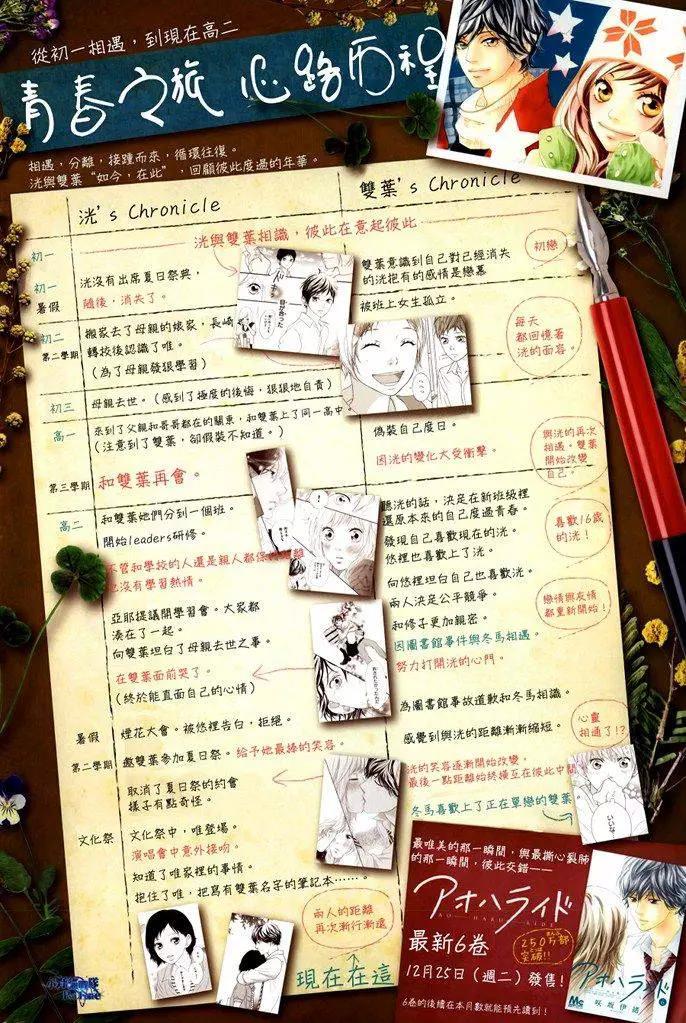 從初一相遇，到現在高二
青春之旅 心路历程
相遇，分離，接踵而來，循環往復。
洸與雙葉“如今，在此”，回顧彼此度過的年華。
洸's Chronicle
雙葉's Chronicle
初一
洸與雙葉相識，彼此在意起彼此
初一
暑假
洸沒有出席夏日祭典，
隨後，消失了。
雙葉意識到自己對已經消失
的洸抱有的感情是戀慕
初戀
被班上女生孤立。
初二
第二學期
搬家去了母親的娘家，長崎
轉校後認識了唯。
(為了母親發狠學習)
每天
都回憶著
洸的面容。
初三
母親去世。(感到了極度的後悔，狠狠地自責)
高一
來到了父親和哥哥都在的關東，和雙葉上了同一高中
(注意到了雙葉，卻假裝不知道。)
偽裝自己度日。
因洸的變化大受衝擊。
與洸的再次
相遇。雙葉
開始改變
自己。
第三學期
和雙葉再會。
高二
和雙葉她們分到一個班。
開始leaders研修。
不管和學校的人還是親人都保持距離
也沒有學習熱情。
聽洸的話，決定在新班級裡
還原本來的自己度過青春。
發現自己喜歡現在的洸。
悠裡也喜歡上了洸。
喜歡16歲
的洸！
向悠裡坦白自己也喜歡洸。
兩人決定公平競爭。
和修子更加親密。
因圖書館事件與冬馬相遇。
努力打開洸的心門。
戀情與友情
都重新開始！
亞耶提議開學習會。大家都
湊在了一起。
向雙葉坦白了母親去世之事。
在雙葉面前哭了。
(終於能直面自己的心情)
暑假
煙花大會。被悠裡告白，拒絕。
為圖書館事故道歉和冬馬相識。
感覺到與洸的距離漸漸縮短。
心靈
相通了!?
第二學期
邀雙葉參加夏日祭。給予她最棒的笑容。
取消了夏日祭的約會
樣子有點奇怪。
洸的笑容逐漸開始改變。
最後一點距離始終橫亙在彼此中間。
冬馬喜歡上了正在單戀的雙葉。
いいな
文化祭
文化祭中，唯登場。
演唱會中意外接吻。
知道了唯家裡的事情。
抱住了唯，把寫有雙葉名字的筆記本……。
兩人的距離
再次漸行漸遠
現在在這
最唯美的那一瞬間，與最撕心裂肺
的那一瞬間，彼此交錯——
アオハライド
AO HARU RIDE
最新6卷
250万部
突破!!
12月25日（週二）發售！
6卷的後續在本月數就能預先讀到！
アオハライド
6
咲坂伊緒